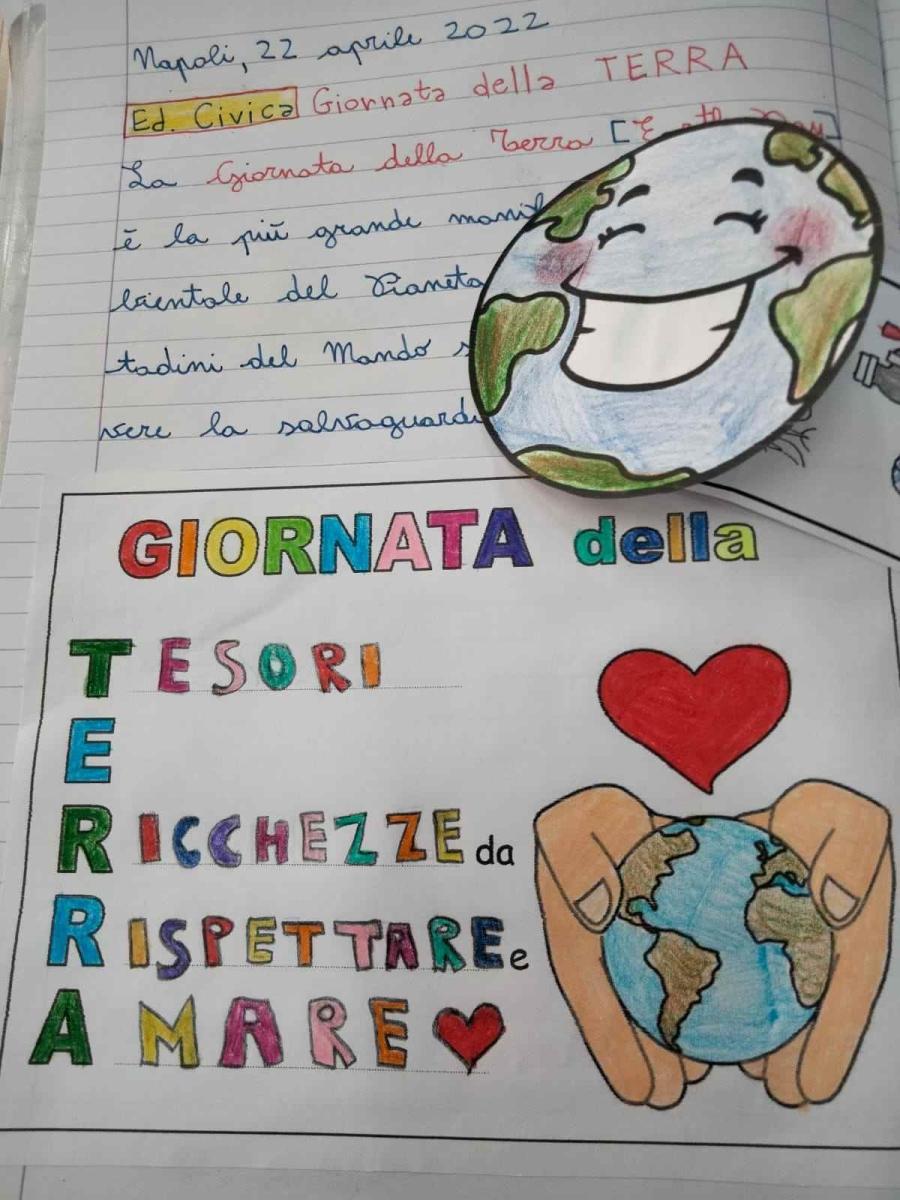 Napoli, 22 aprile 2022
Ed. Civica Giornata della TERRA
La Giornata della Terra [
è la più grande manif
bientale del Pianeta
tadini del Mondo s
vere la salvaguardi
GIORNATA della
TESORI
E
RICCHEZZE da
RISPETTARE e
AMARE